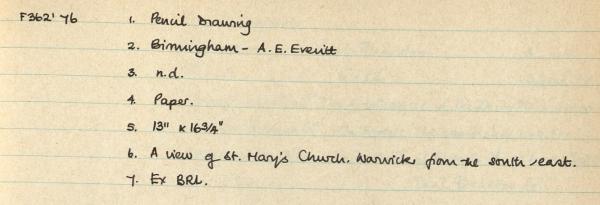 F362'76 1. Pencil Drawing
2. Birmingham - A.E. Everitt
3. n.d.
4. Paper.
5. 13" x 16 3/4"
6. A view of St. Mary's Church, Warwick from the south/east.
7. Ex BRL.